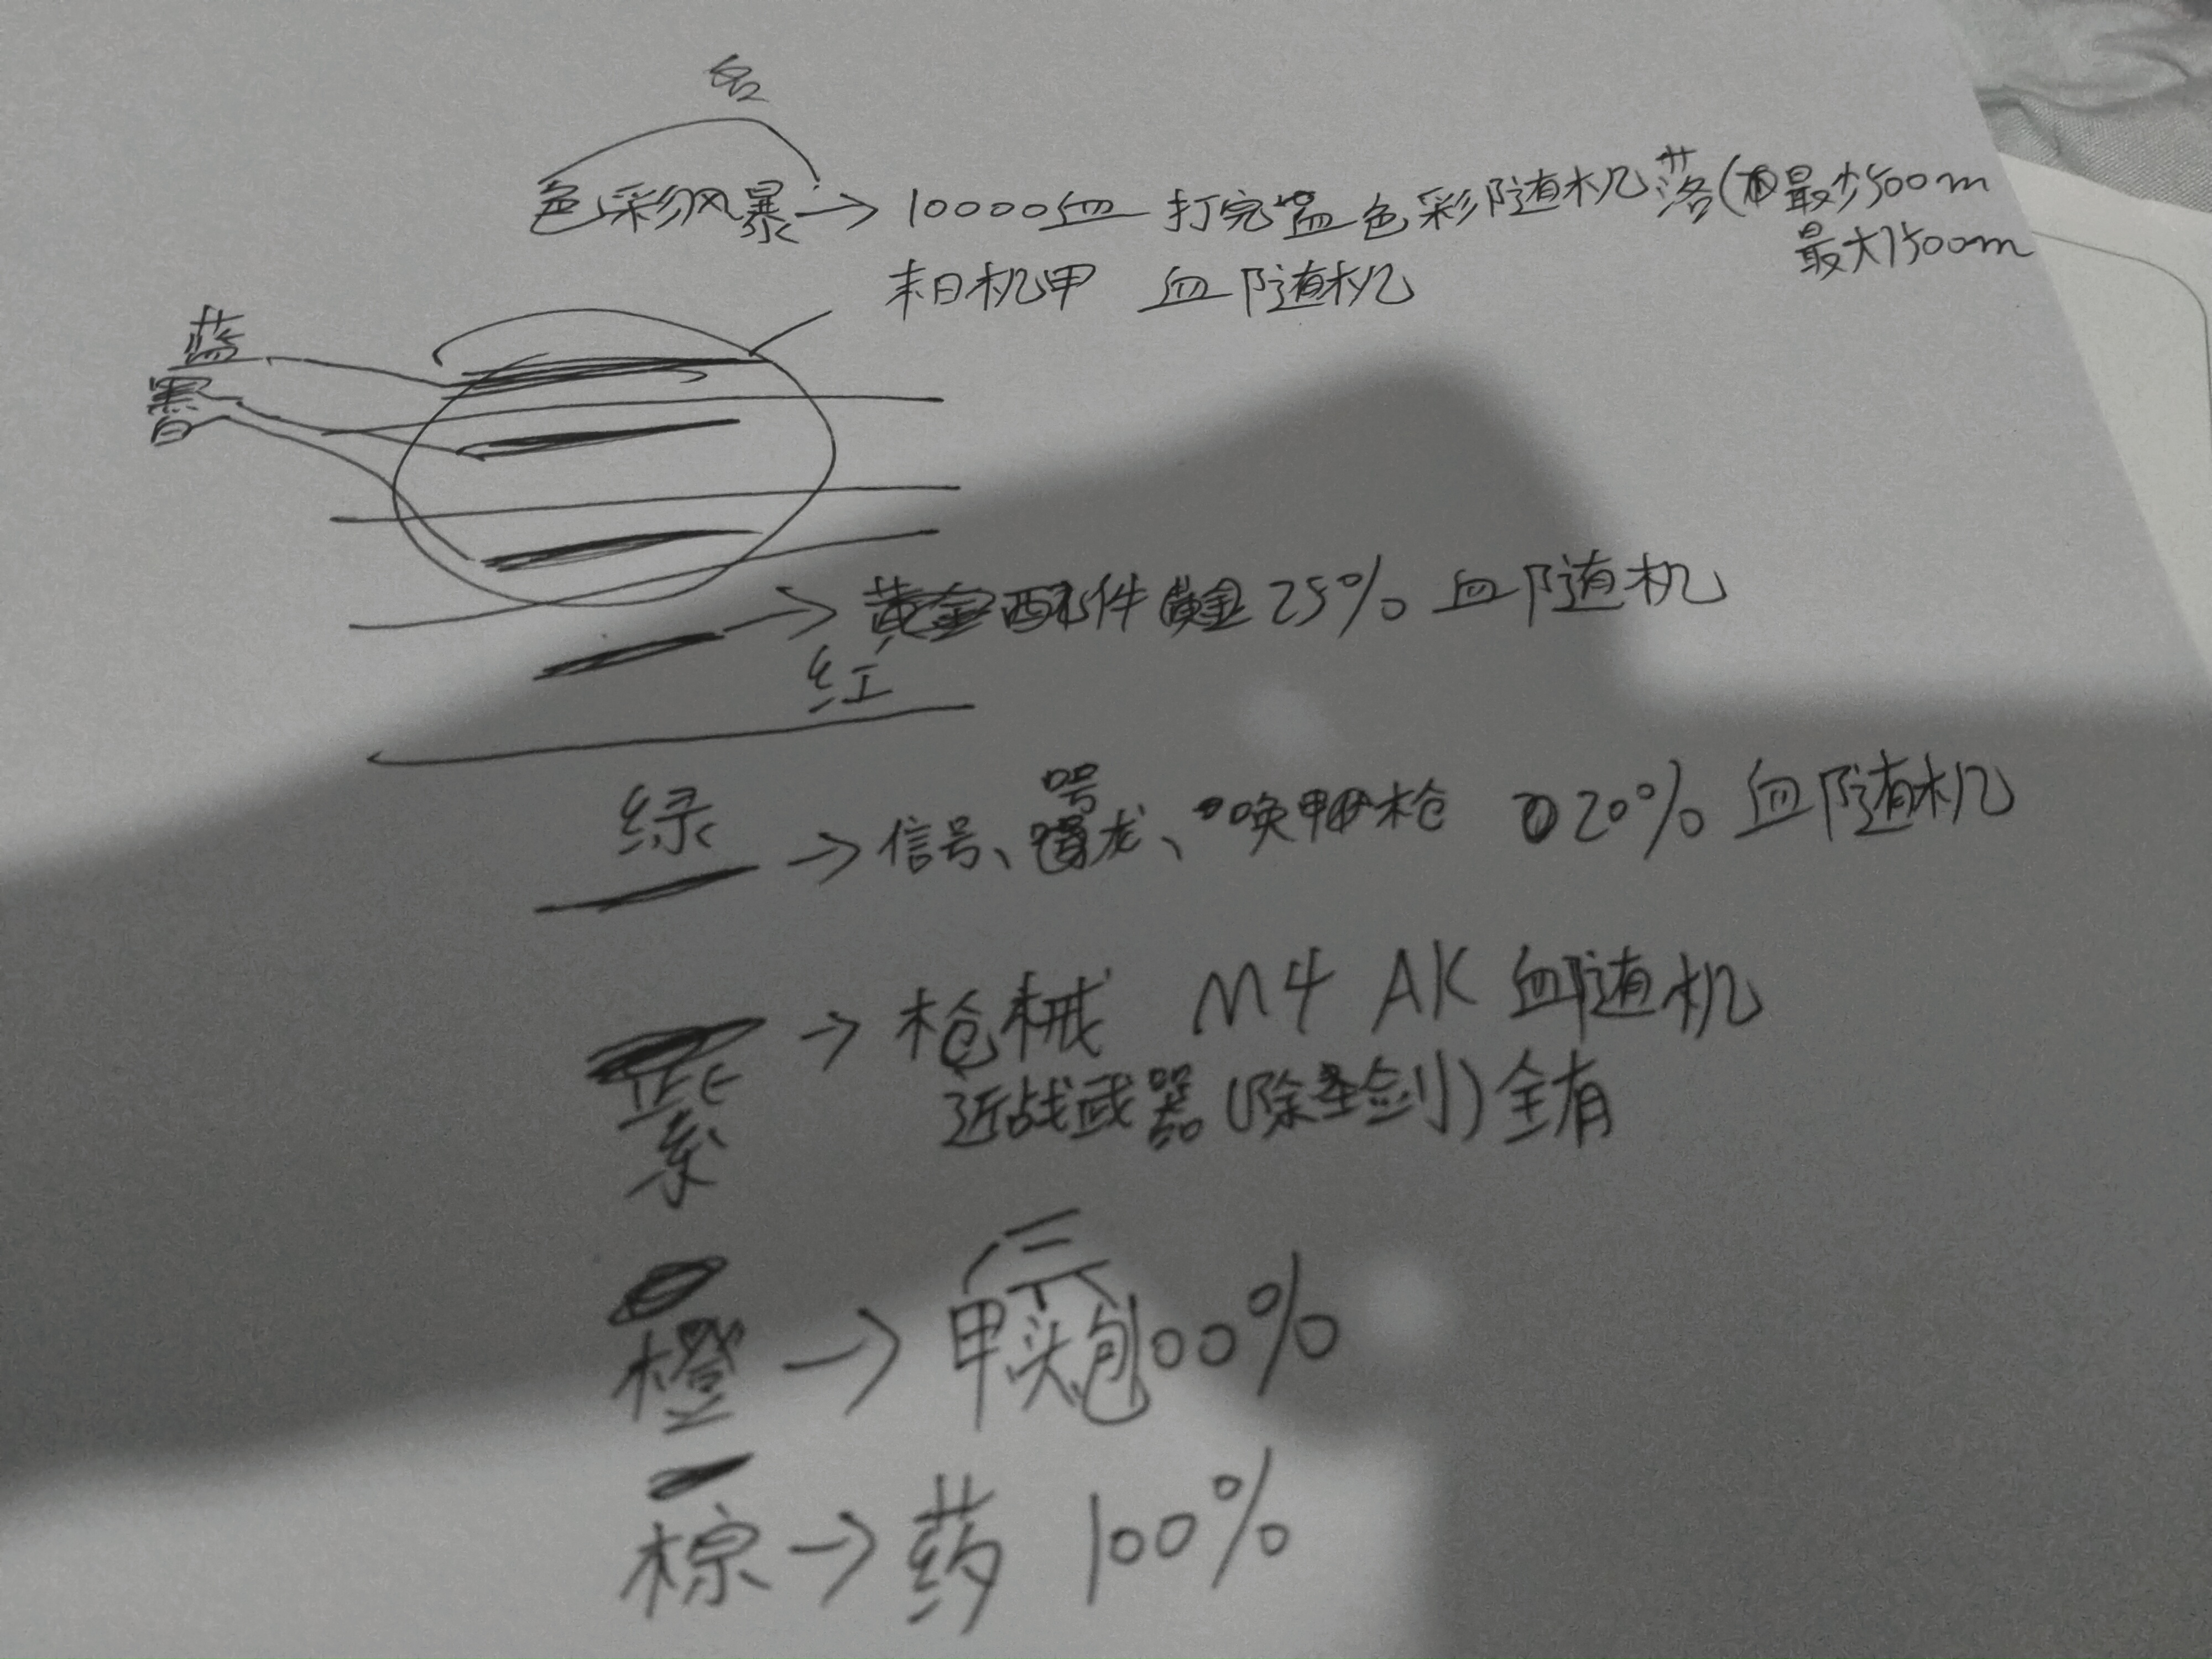 名
色彩风暴→10000血 打完蓝色彩随机落(最少500m
最大1500m
末日机甲 血随机
蓝
黑
白
→黄金配件黄金25% 血随机
红
绿
→信号、号龙、唤甲枪 20% 血随机
→枪械 M4 AK 血随机
紫
近战武器(除圣剑)全有
三
橙→甲头包100%
棕→药 100%